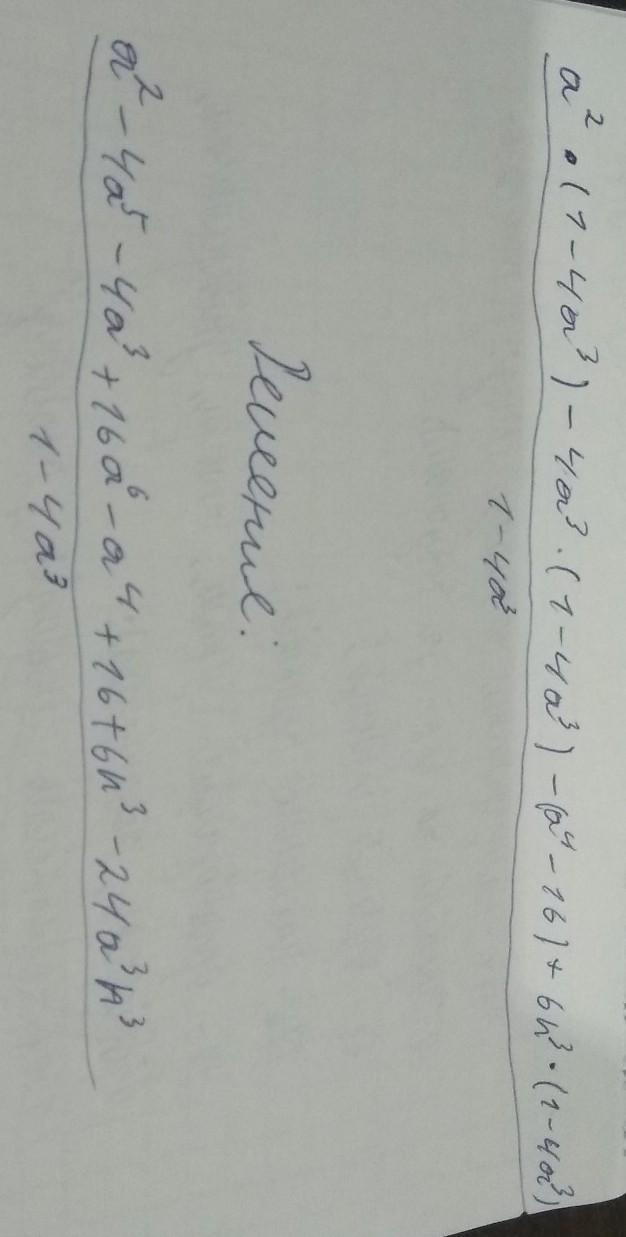 a² · (1 - 4a³) - 4a³ · (1 - 4a³) - (a⁴ - 16) + 6n³ · (1 - 4a³)
1 - 4a³
Решение:
a² - 4a⁵ - 4a³ + 16a⁶ - a⁴ + 16 + 6n³ - 24a³n³
1 - 4a³